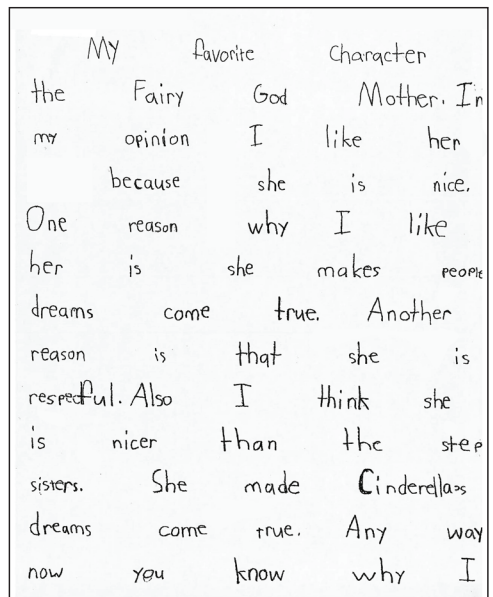 My favorite Character
the Fairy God Mother. In
my opinion I like her
because she is nice.
One reason why I like
her is she makes people
dreams come true. Another
reason is that she is
respectful. Also I think she
is nicer than the step
sisters. She made Cinderellas
dreams come true. Any way
now you know why I